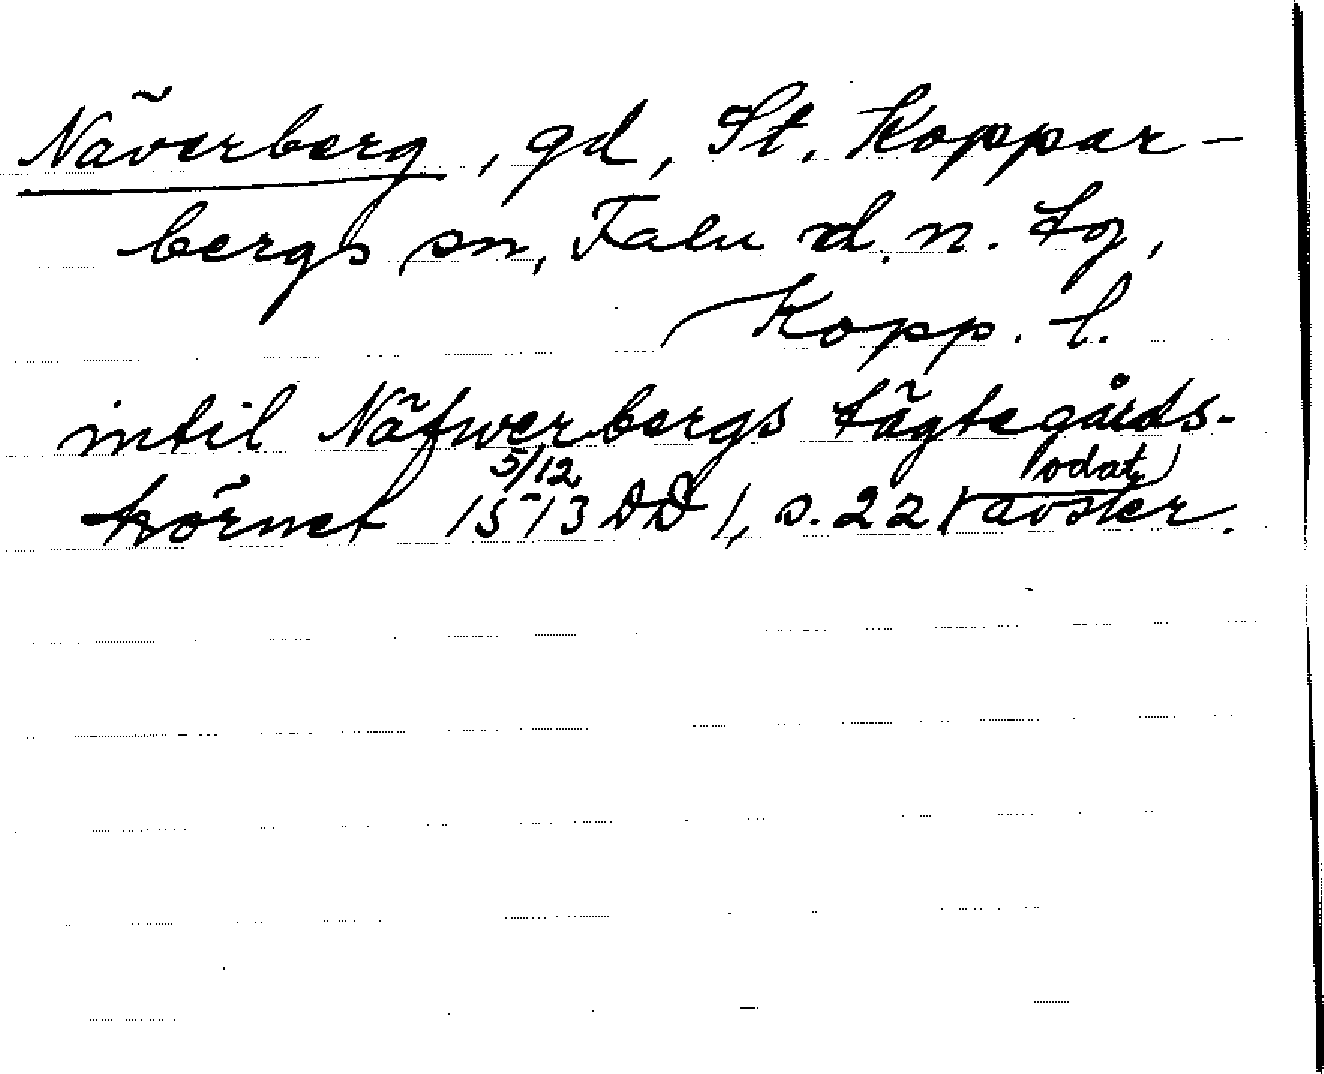 Näverberg, gd, St. Koppar-
bergs sn, Falu d. n. tg,
Kopp. l.
intil Näfwerbergs tägtegårds-
hörnet 5/12 1573 DD 1, s. 22 (avskr. odat.)